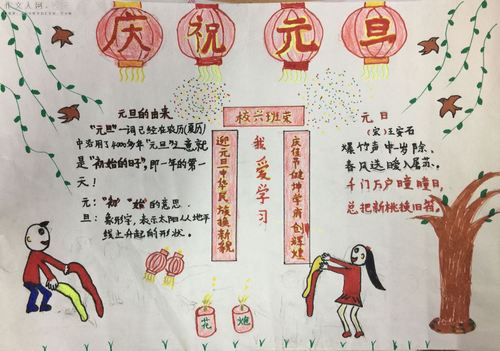 作文人网
庆祝元旦
元旦的由来
"元旦"一词已经在农历(夏历)
中沿用了4000多年"元旦"之意就
是"初始的日子",即一年的第一
天!
元:"初""始"的意思.
旦:象形字,表示太阳从地平
线上升起的形状.
校兴班荣
迎元旦中华民族换新貌
我爱学习
庆佳节健坤学府创辉煌
元日
(宋)王安石
爆竹声中一岁除、
春风送暖入屠苏、
千门万户曈曈日、
总把新桃换旧符。
花炮